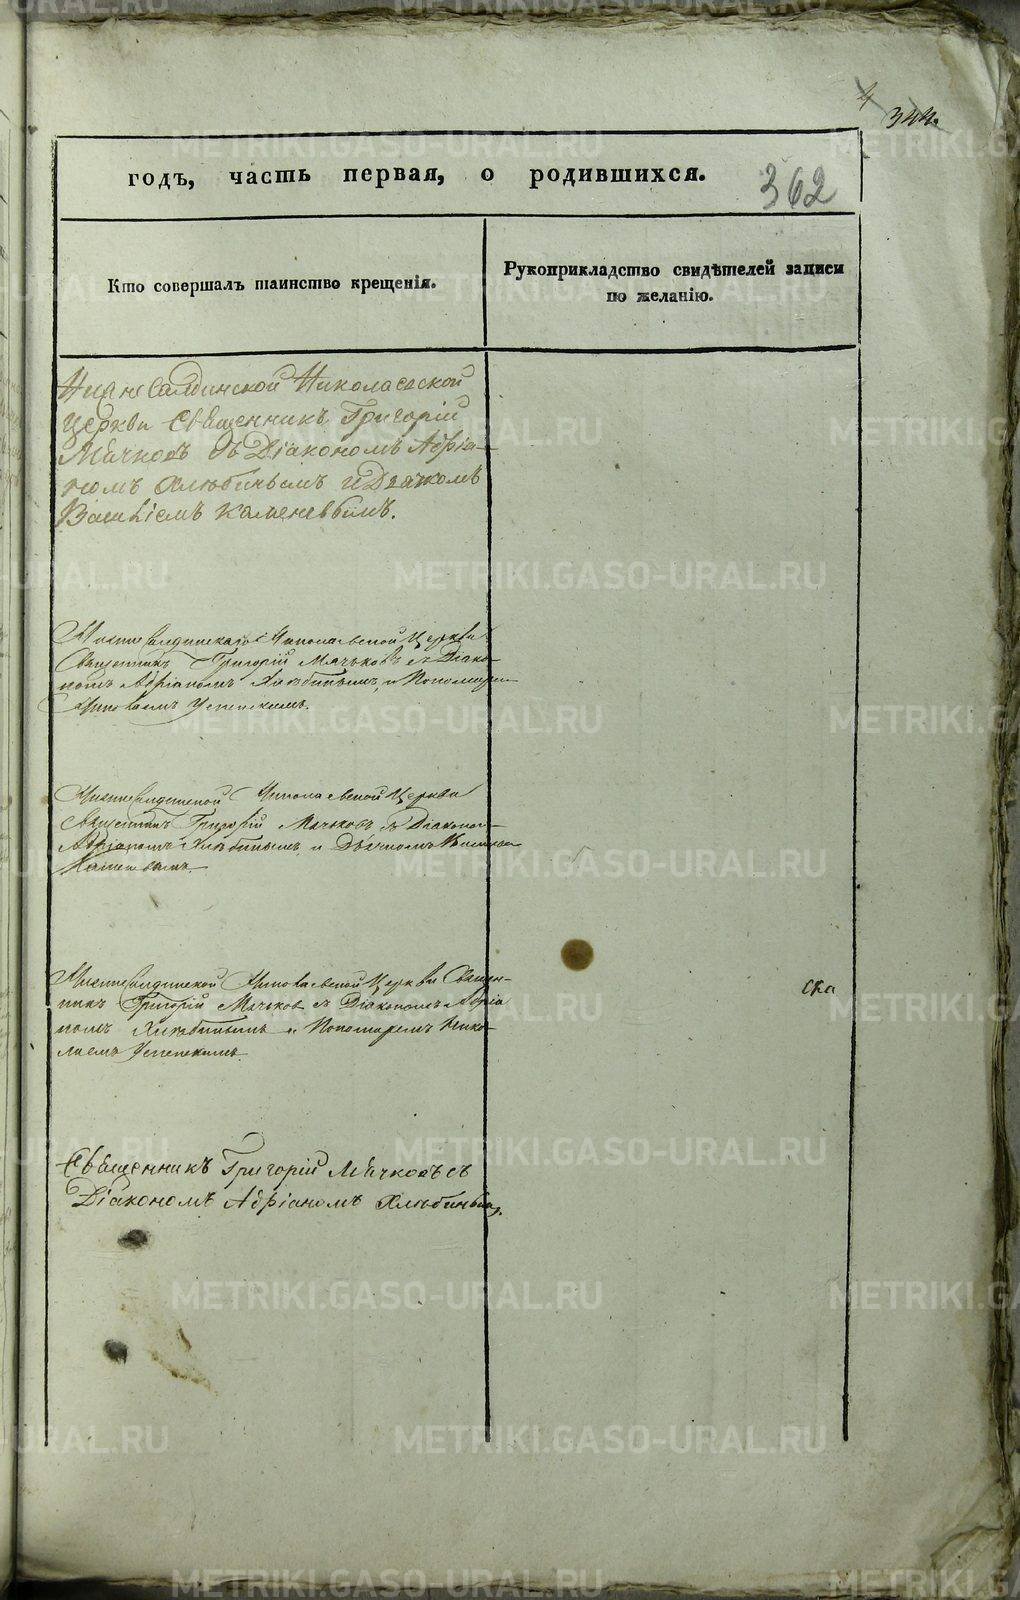 4
344.
362
годъ, часть первая, о родившихся.
Кто совершалъ таинство крещенія.
Рукоприкладство свидѣтелей записи
по желанію.
Нижнесалдинской Николаевской
Церкви Священникъ Григорій
Мячковъ съ Діакономъ Адріа-
номъ Хлюбинымъ и Дьячкомъ
Василіемъ Каменевымъ.
Николаевской Церкви
Священникъ Григорій Мячьковъ съ Діако-
номъ Адріаномъ Хлюбинымъ, и Пономарем
Николаемъ Успенскимъ.
Нижнесалдинской Николаевской Церкви
Священникъ Григорій Мячьковъ съ Діаконом
Адріаномъ Хлюбинымъ и Дьячкомъ
Каменевымъ.
Нижнесалдинской Николаевской Церкви Священ-
никъ Григорій Мячьков съ Діакономъ Адріа
номъ Хлюбинымъ и Пономаремъ Нико-
лаемъ Успенскимъ.
Священникъ Григорій Мячковъ съ
Діакономъ Адріаномъ Хлюбинымъ.
METRIKI.GASO-URAL.RU